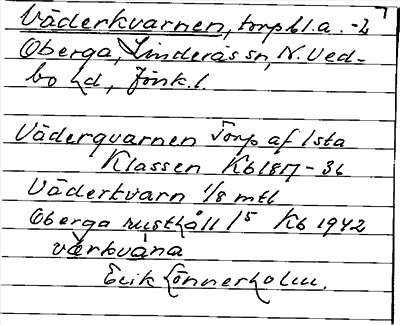 Väderkvarnen, torp bl.a. -2
Oberga, Linderås sn, N. Ved-
bo hd, Jönk. l.
Väderqvarnen Torp af 1sta
Klassen Kb 1817-36
Väderkvarn 1/8 mtl
Oberga rusthåll 15 Kb 1942
värkvána
Erik Lönnerholm.